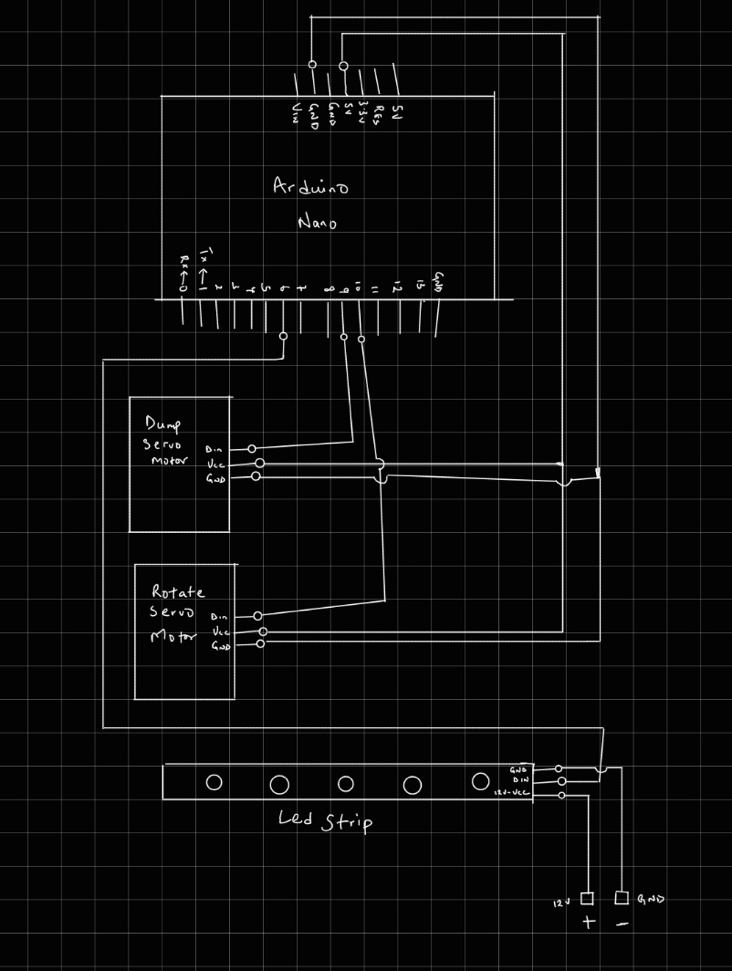 Vin
GND
GND
5V
3.3V
RES
5V
Arduino
Nano
Rx
Tx
0
1
2
3
4
5
6
7
8
9
10
11
12
13
GND
Dump
Servo
Motor
Din
Vcc
GND
Rotate
Servo
Motor
Din
Vcc
GND
GND
DIN
12V-VCC
Led Strip
12V
GND
+
-